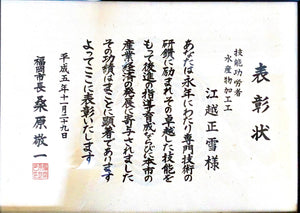 表彰状
技能功労者
水産物加工工
江越正雪様
あなたは永年にわたり専門技術の
研鑽に励まれその卓越した技能を
もって後進の指導育成ならびに本市の
産業経済の発展に寄与されました
その功績はまことに顕著であります
よってここに表彰いたします
平成五年十一月二十九日
福岡市長 桑原敬一